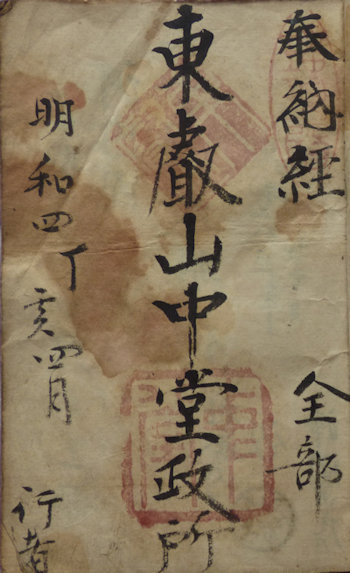 奉納経 全部
東叡山中堂政所
明和四丁亥四月 行者